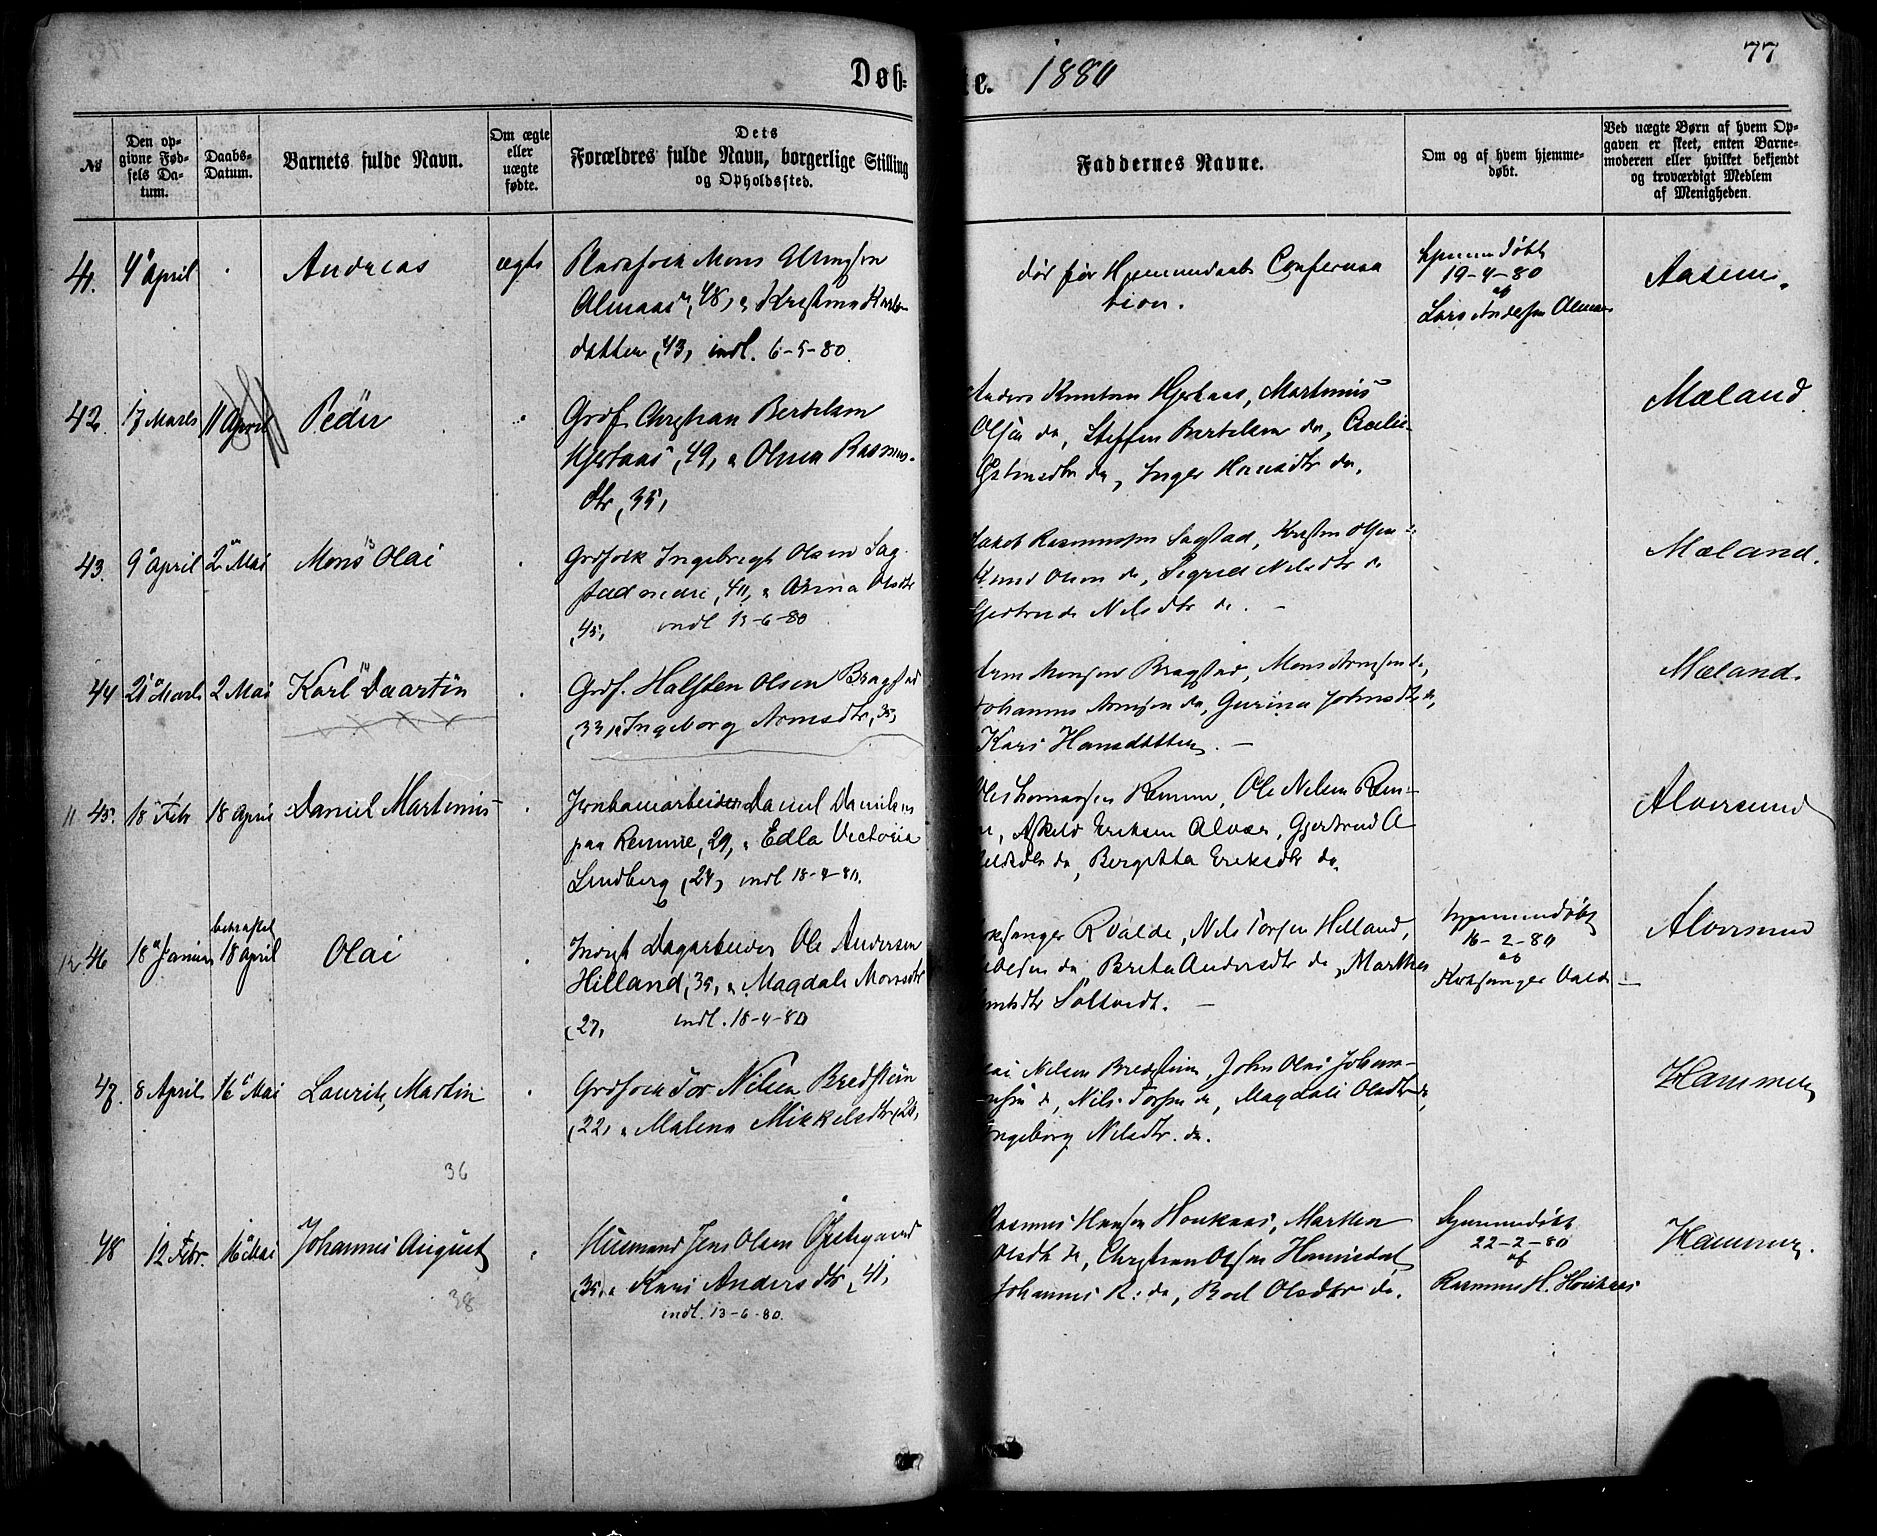 77
Døb-
te. 1880
№
Den op-
givne Fød-
sels Da-
tum.
Daabs-
Datum.
Barnets fulde Navn.
Om ægte
eller
uægte
fødte.
Dets
Forældres fulde Navn, borgerlige Stilling
og Opholdssted.
Faddernes Navne.
Om og af hvem hjemme-
døbt.
Ved uægte Børn af hvem Op-
gaven er skeet, enten Barne-
moderen eller hvilket bekjendt
og troværdigt Medlem
af Menigheden.
41. 4 April Andreas ægte Mons
Almaas, 48,
datter, 43, indl. 6-5-80.
død før Hjemmedaabs Conferma
tion.
Hjemmedøbt
19-4-80
af
Lars Andersen Almaas
Aasem.
42. 17 Marts 11 April Peder
Grdf. Christian Bertelsen
Hjertaas, 49, & Olina Rasmus-
dtr, 35,
Anders Knutsen Hjertaas, Martinus
Olsen do, Steffen Bertelsen do,
do, Inger Hansdtr do.
Mæland.
43. 9 April 2 Mai Mons Olai
Grdfolk Ingebrigt Olsen Sag-
stad nedre, 40, & Anna Olsdtr
,45, indl 13-6-80
Jakob Rasmussen Sagstad, Kristen Olsen
Knud Olsen do, Sigrid Nilsdtr do
Gjertrude Nilsdtr do. -
Mæland.
44 21 Marts 2 Mai Karl Daartin
Grdf. Halsten Olsen Bragstad
,33, & Ingeborg Arnesdtr, 35,
Arne Monsen Bragstad, Mons Arnesen do,
Johannes Arnesen do, Gurina Johnsdtr do,
Kari Hansdatter. -
Mæland.
11 45. 18 Febr 18 April Daniel Martinus
Daniel Danielsen
paa Remme, 29, & Edla Victoria
Lindberg, 24, indl 18-4-80.
Remme, Ole Nilsen Rem-
me, Askild Eriksen Alver, Gjertrud A
do, Bergitta Eriksdtr do.
Alversund
12 46 18 Januar
bekræftet
18 April Olai
Indrst Dagarbeider Ole Andersen
Hilland, 35, & Magdali Monsdtr
,27, indl. 18-4-80
Kirksanger R Valde, Nils Torsen Hilland,
do, Brita Andersdtr do, Marthe
Soltvedt. -
Hjemmedøbt
16-2-80
af
Kirksanger Valde -
Alversund
47. 8 April 16 Mai Laurits Martin
Grdfolk Tor Nilsen Bredstein
,22, & Malena Mikkelsdtr, 20,
Olai Nilsen Bredstein, John Olai Johan-
nesen do, Nils Torsen do, Magdali Olsdtr do,
Ingeborg Nilsdtr. do.
Hammer
36
48 12 Febr. 16 Mai Johannes August
Husmand Jens Olsen
,35, & Kari Andersdtr, 41,
indl. 13-6-80.
38
Rasmus Hansen Houkaas, Marthe
Olsdtr do, Christian Olsen Hannisdal
Johannes R: do, Boel Olsdtr do.
Hjemmedøbt
22-2-80
af
Rasmus H. Houkaas
Hammer.